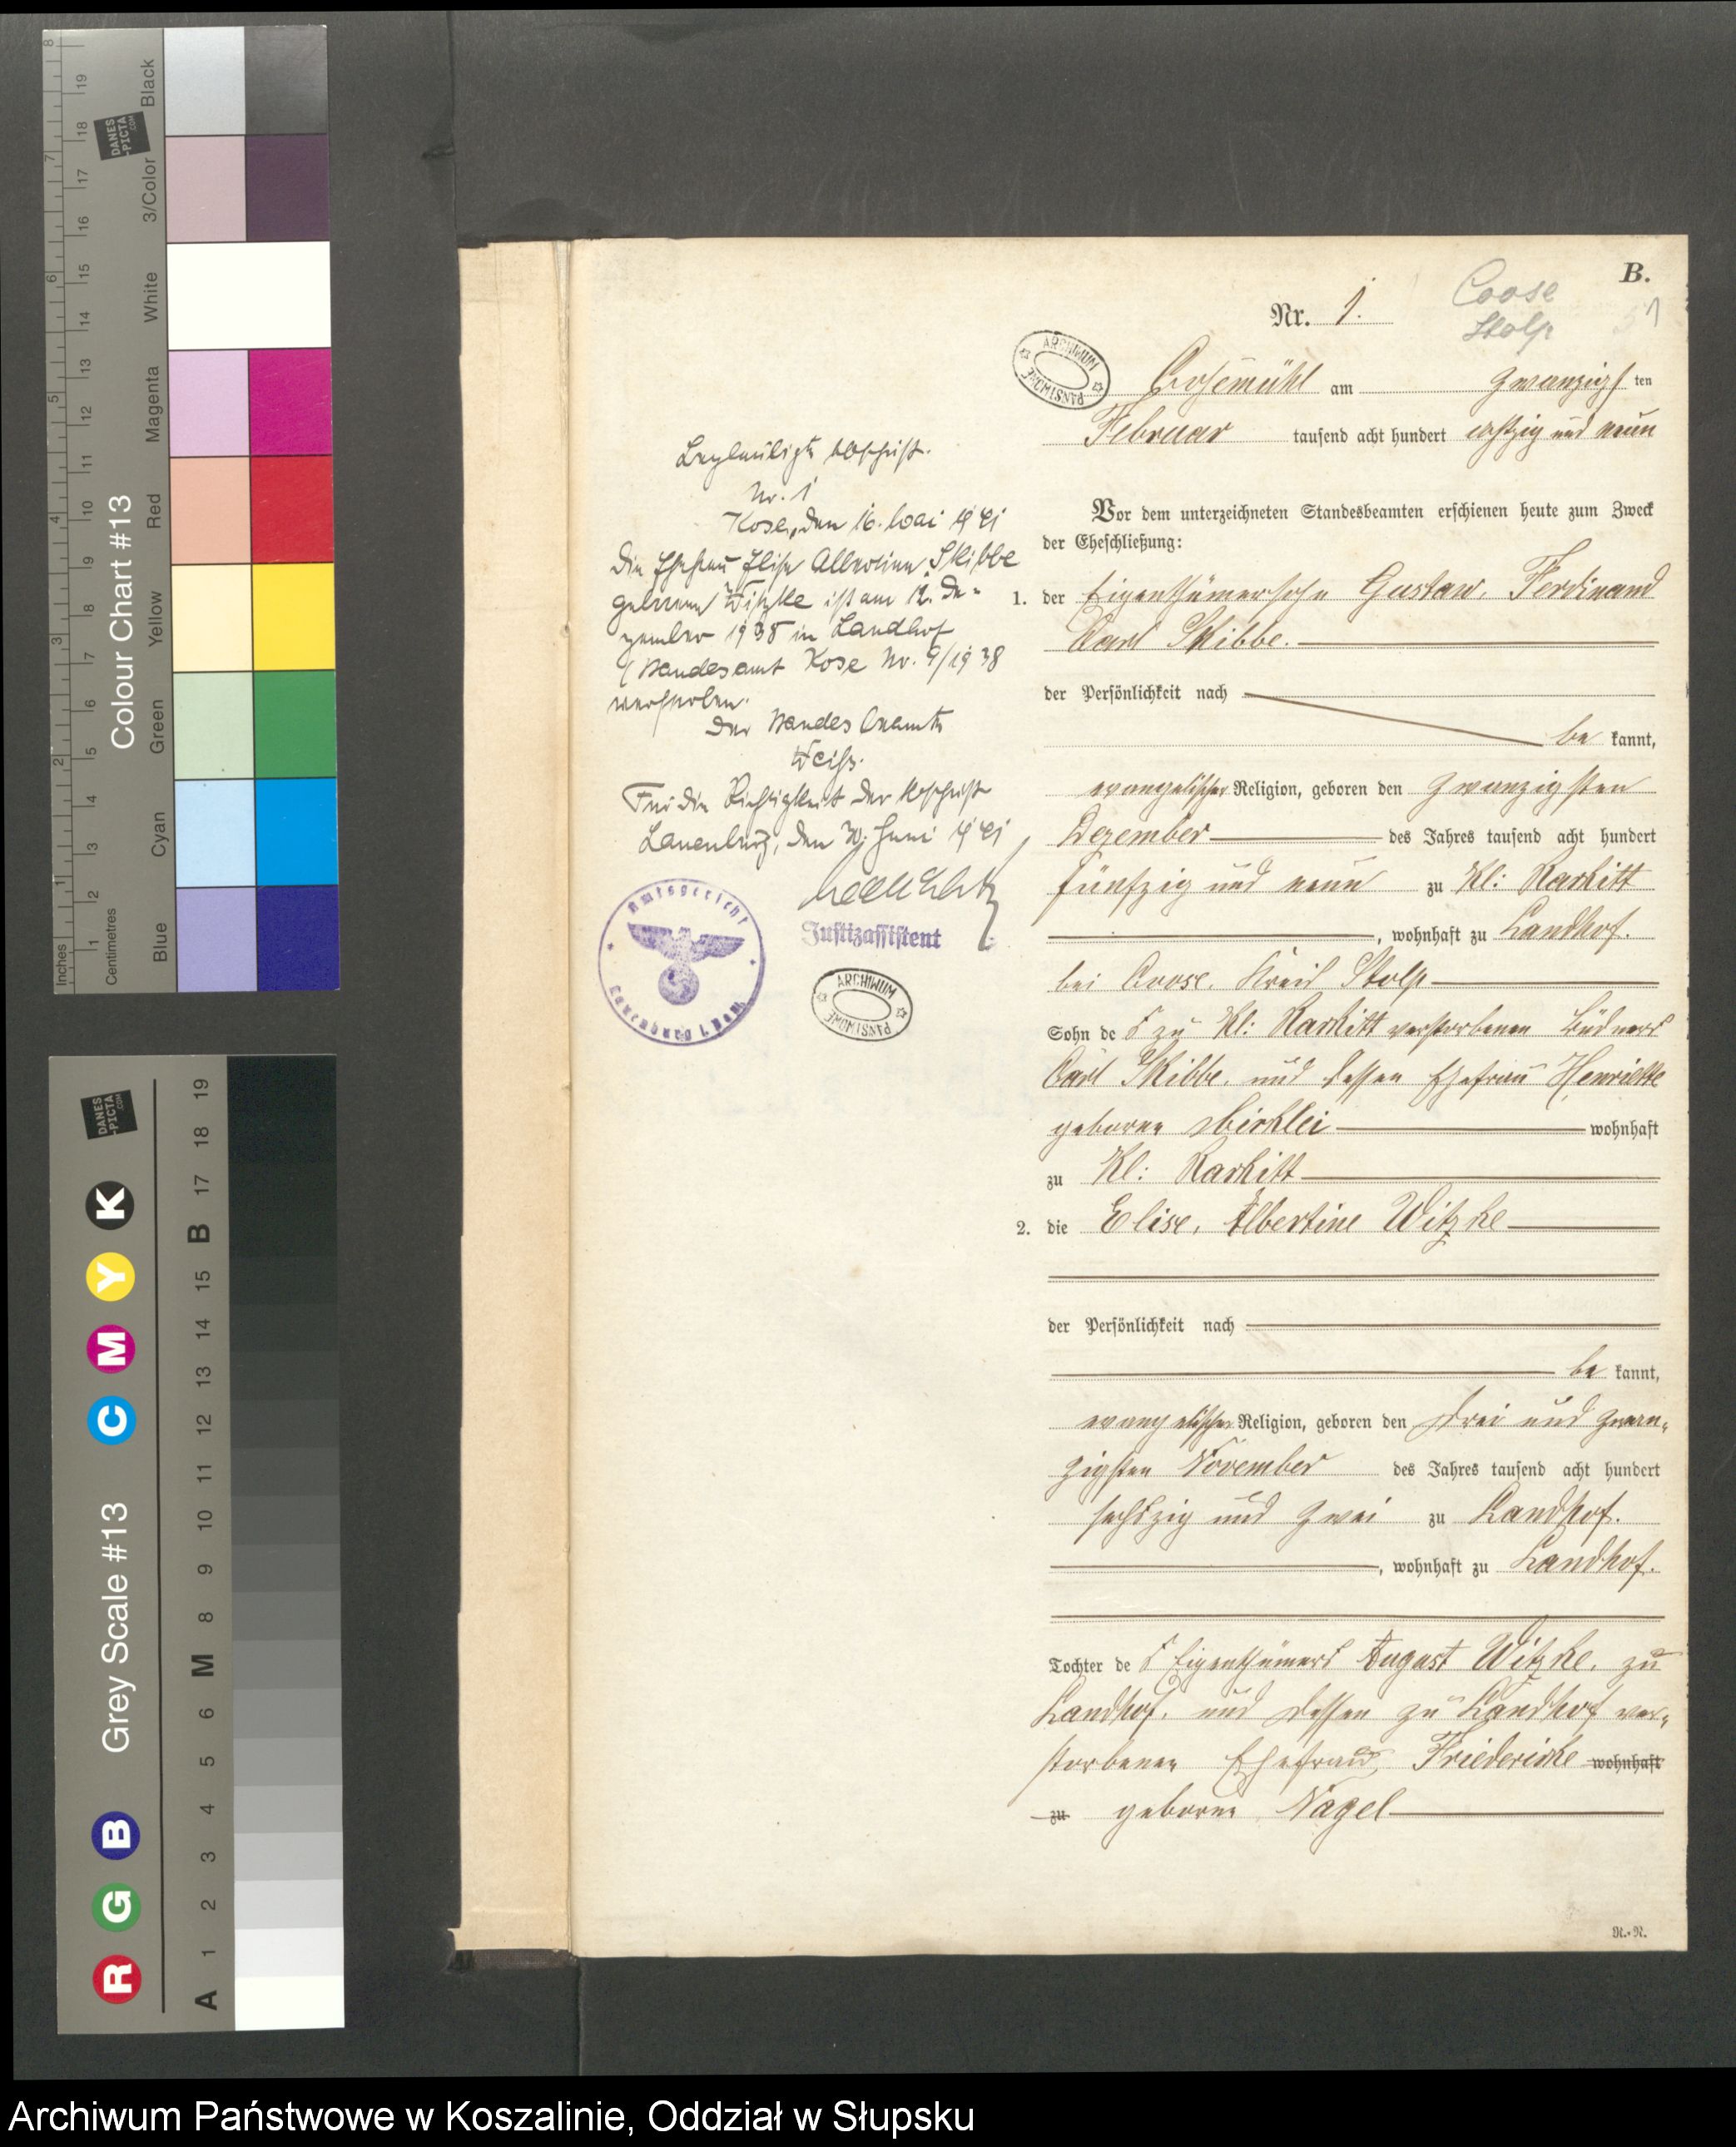 B.
Coose
Stolp
51
Nr. 1.
ARCHIWUM PAŃSTWOWE
Cosemühl am zwanzigsten
Februar tausend acht hundert achtzig und neun
Vor dem unterzeichneten Standesbeamten erschienen heute zum Zweck
der Eheschließung:
1. der Eigenthümersohn Gustav, Ferdinand
Carl Skibbe.
der Persönlichkeit nach
be kannt,
evangelischer Religion, geboren den zwanzigsten
Dezember des Jahres tausend acht hundert
fünfzig und neun zu Kl: Rakitt
, wohnhaft zu Landhof.
bei Coose, Kreis Stolp
Sohn des zu Kl: Rakitt verstorbenen Büdners
Carl Skibbe, und dessen Ehefrau Henriette
geborne wohnhaft
zu Kl: Rakitt
2. die Elise, Albertine Witzke
der Persönlichkeit nach
be kannt,
evangelischer Religion, geboren den drei und zwan-
zigsten November des Jahres tausend acht hundert
sechszig und zwei zu Landhof.
, wohnhaft zu Landhof.
Tochter des Eigenthümers August Witzke, zu
Landhof, und dessen zu Landhof ver-
storbenen Ehefrau, Friedericke wohnhaft
zu geborne Nagel
R.-R.
Beglaubigte Abschrift.
Nr. 1
Kose, den 16. Mai 1941
Die Ehefrau Elise Albertine Skibbe
geborene Witzke ist am 12. De-
zember 1938 in Landhof
(Standesamt Kose Nr. 9/1938
verstorben.
Der Standesbeamte
Weiß.
Für die Richtigkeit der Abschrift
Lauenburg, den Juni 1941
Justizassistent
Amtsgericht
Lauenburg i. Pom.
ARCHIWUM PAŃSTWOWE
Inches
1 2 3 4 5 6 7 8
Centimetres
1 2 3 4 5 6 7 8 9 10 11 12 13 14 15 16 17 18 19
Colour Chart #13
Blue Cyan Green Yellow Red Magenta White 3/Color Black
DANES
-PICTA
.COM
Grey Scale #13
R G B C M Y K
A 1 2 3 4 5 6 M 8 9 10 11 12 13 14 15 B 17 18 19
DANES
-PICTA
.COM
Archiwum Państwowe w Koszalinie, Oddział w Słupsku